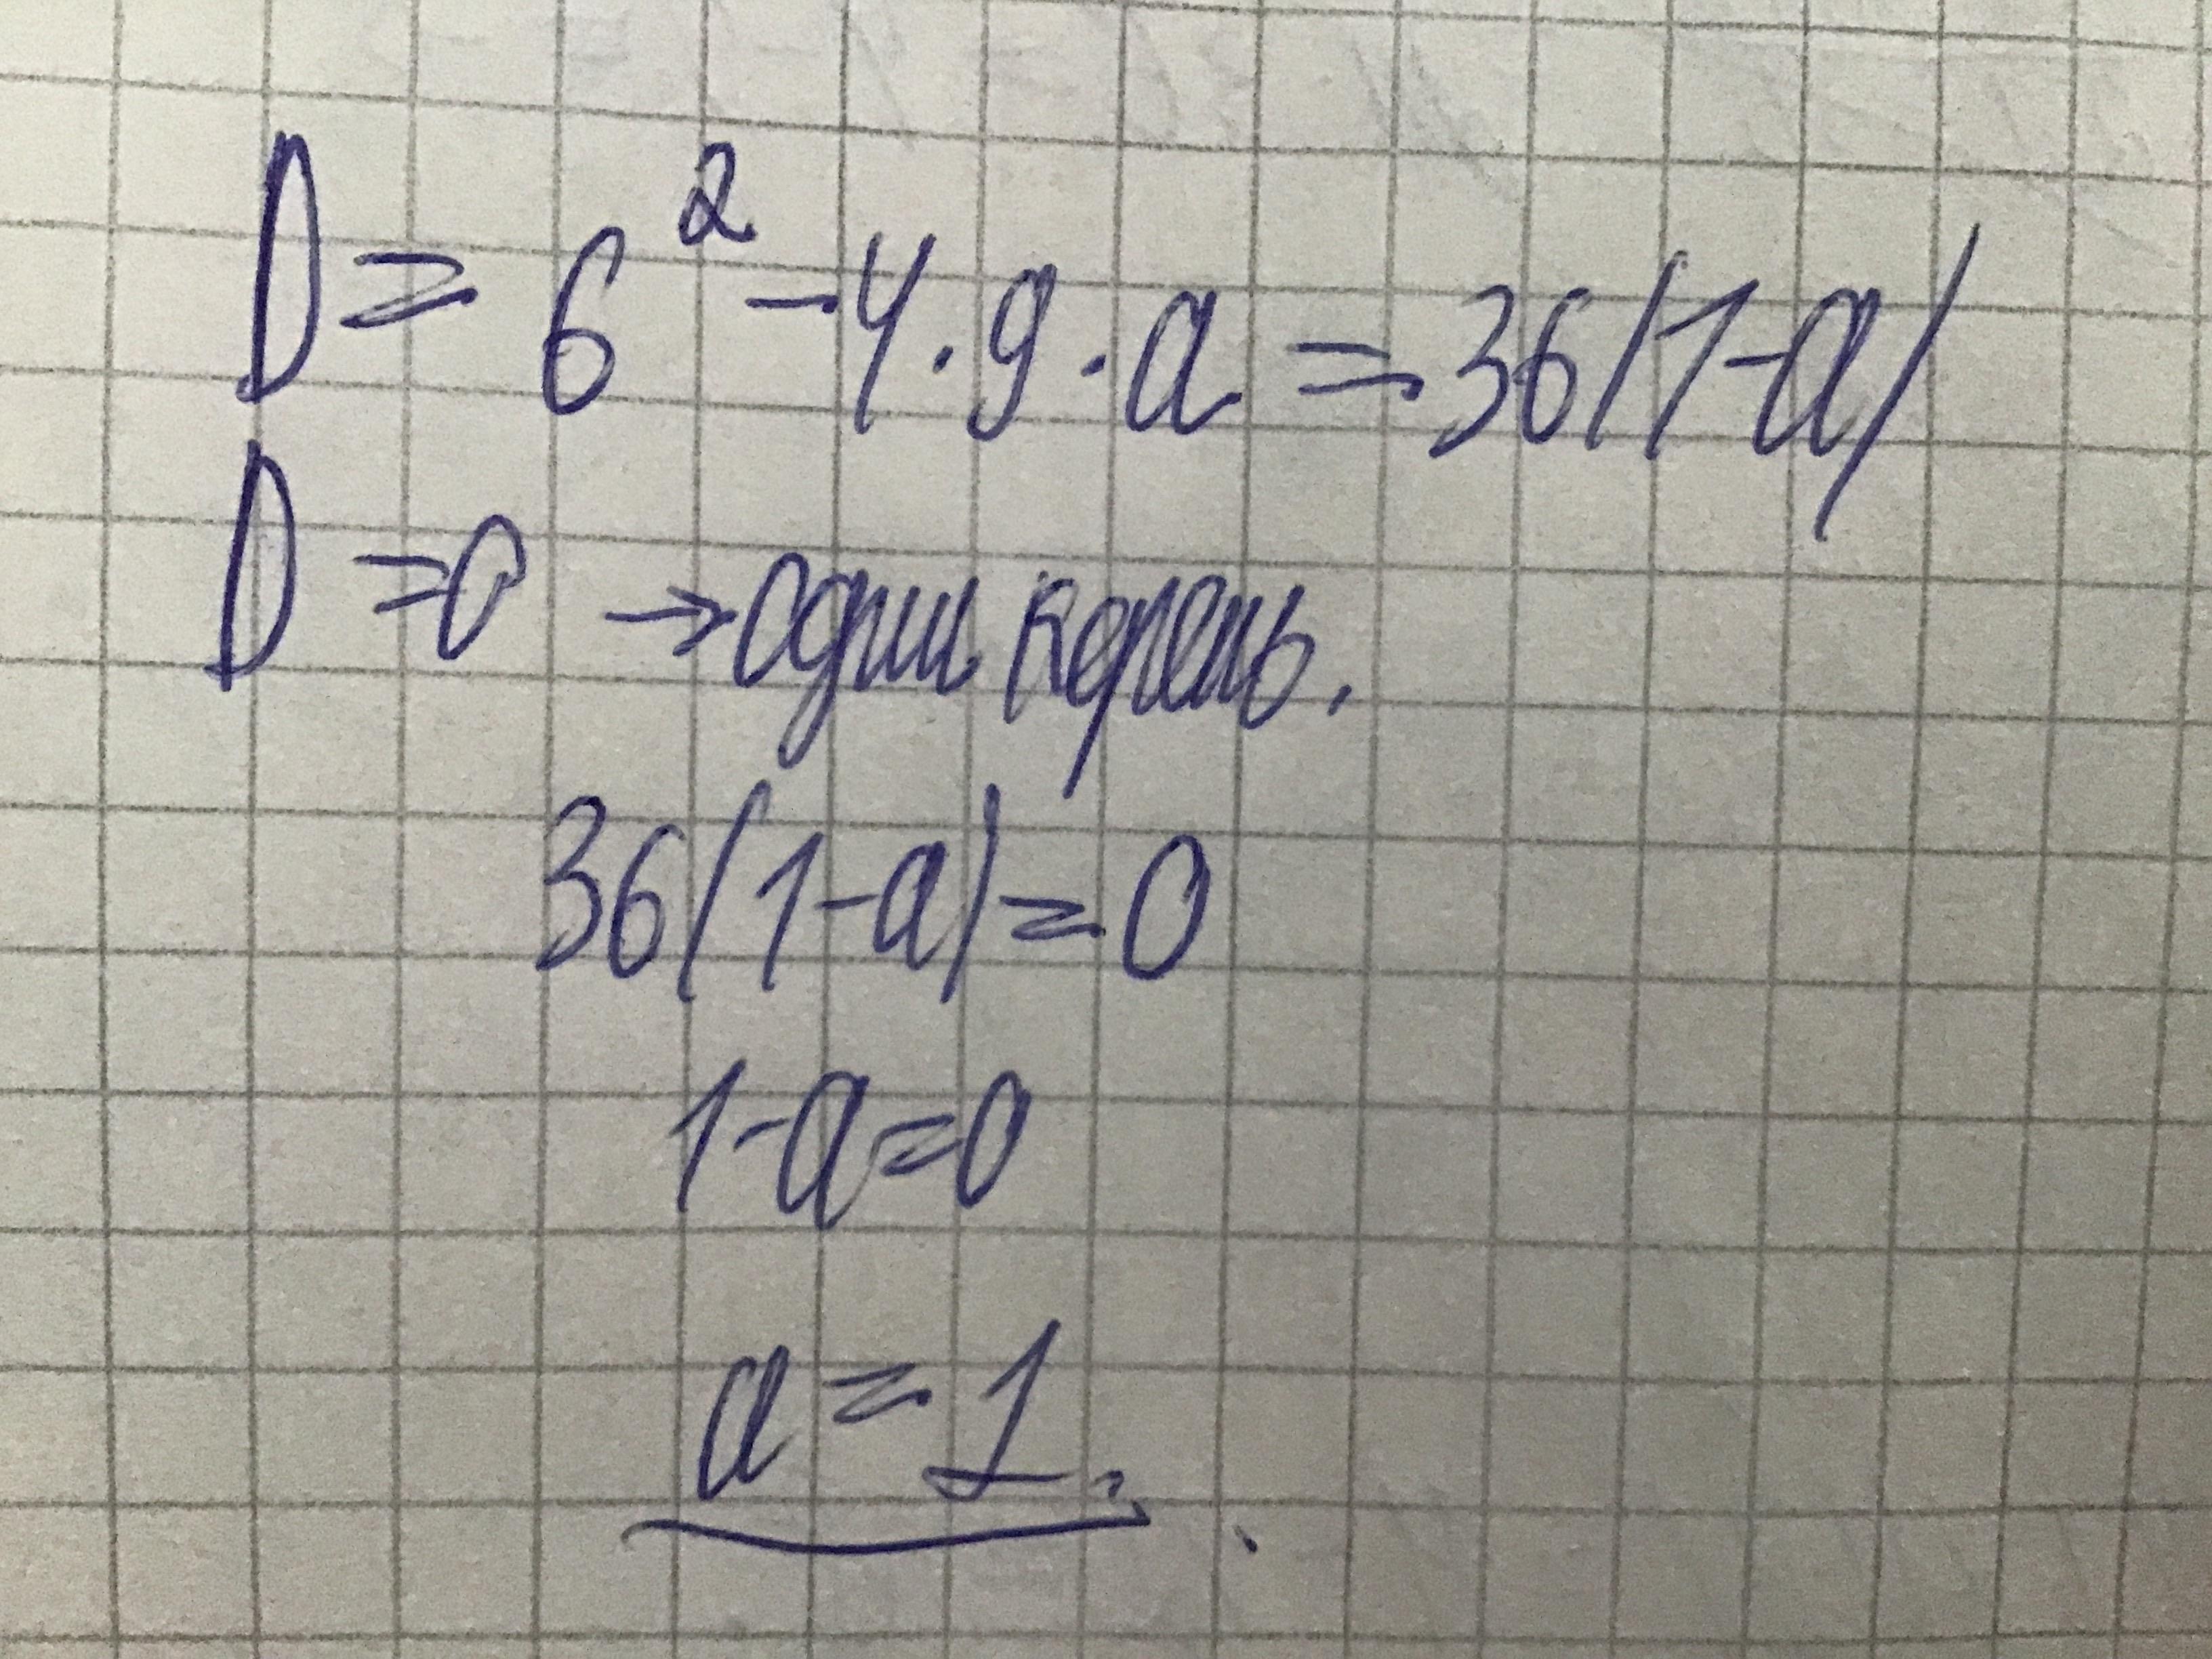 D = 6² - 4 · 9 · a = 36(1-a)
D = 0 → один корень.
36(1-a) = 0
1-a=0
a = 1.